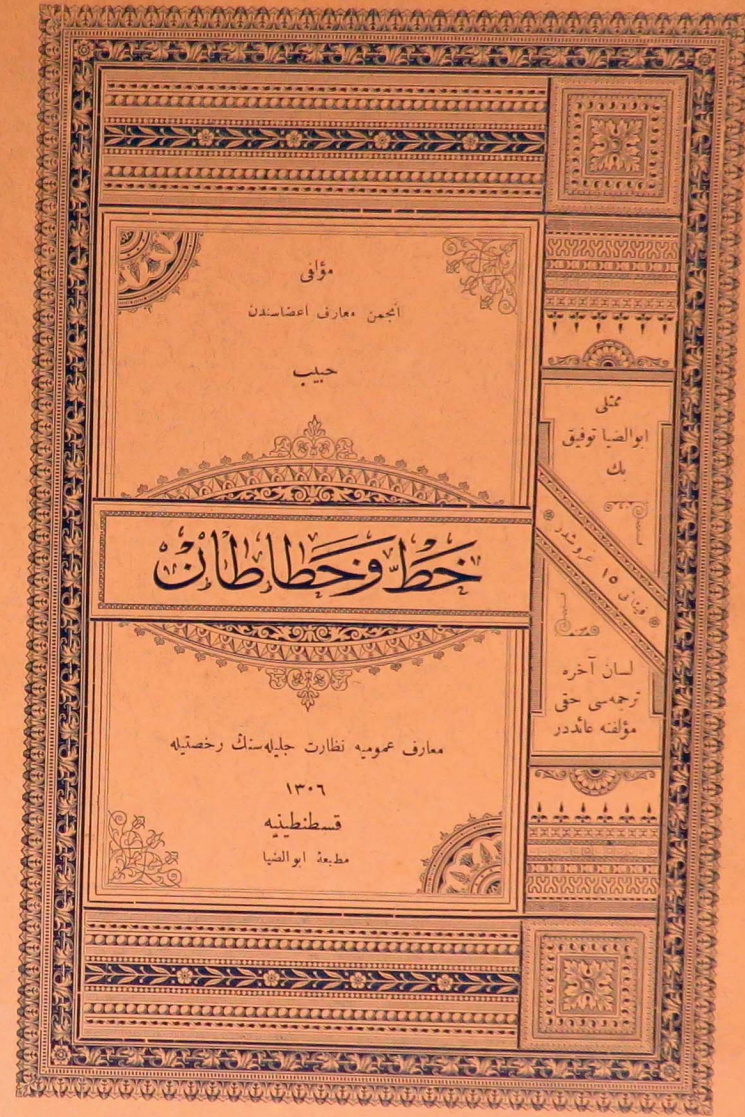 مؤلفی
انجمن معارف اعضاسندن
حبیب
خط و خطاطان
معارف عمومیه نظارت جلیله‌سنڭ رخصتیله
١٣٠٦
قسطنطینیه
مطبعهٔ ابوالضیا
ممثلی
ابوالضیا توفیق
بك
فیٔاتی ١٥ غروشدر
لسان آخره
ترجمه‌سی حقی
مؤلفنه عائددر